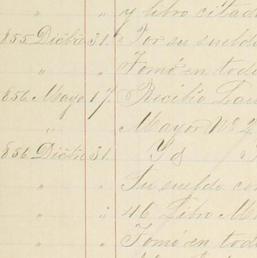 y libro citado
855 Dicbre 31. Por su sueldo
" " Tomó en todo
856 Mayo 17. Recibió
" Mayor Nº 2
856 Dicbre 31.
" " Su sueldo con
" " 46 Libro M
" " Tomó en todo